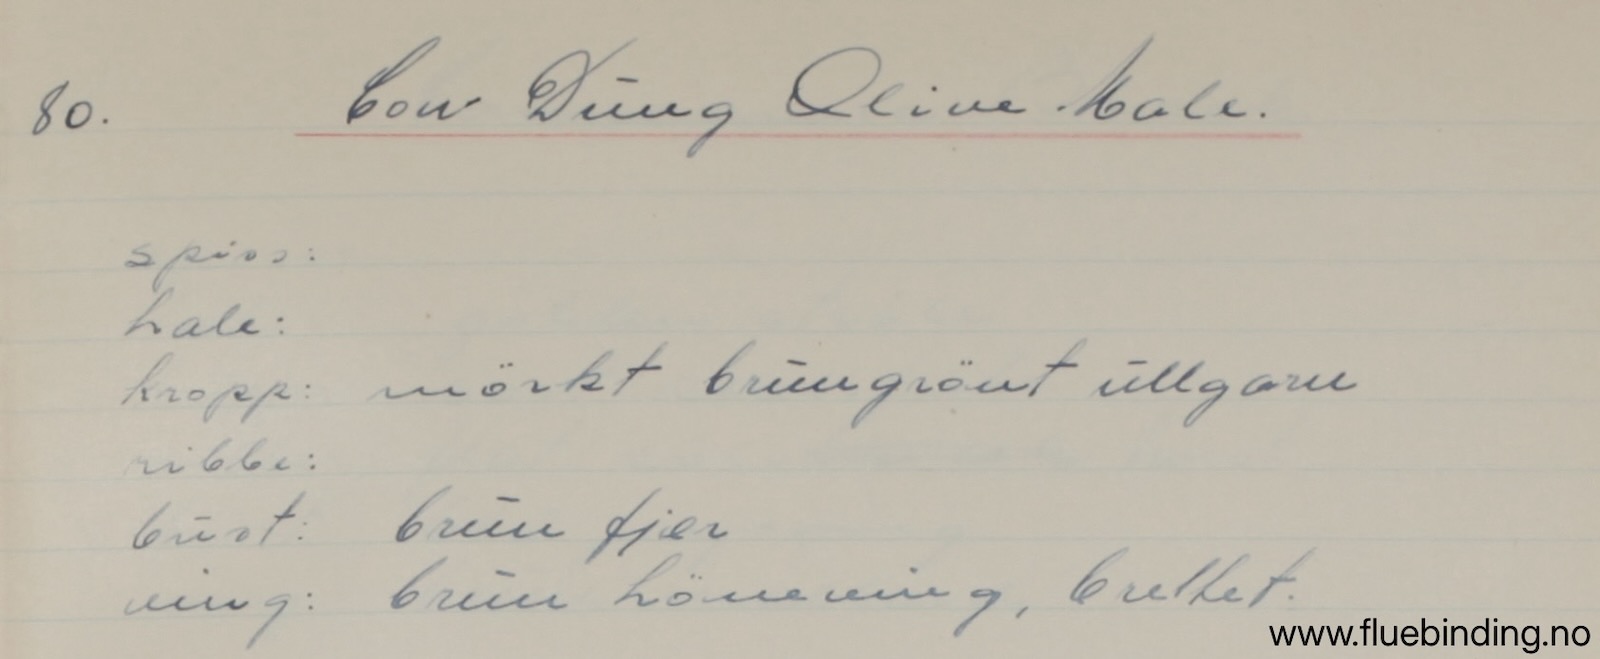 80. Cow Dung Olive Male.
spiss:
hale:
kropp: mörkt brungrönt ullgarn
ribbe:
bust: brun fjær
ving: brun hönseving, brettet.
www.fluebinding.no